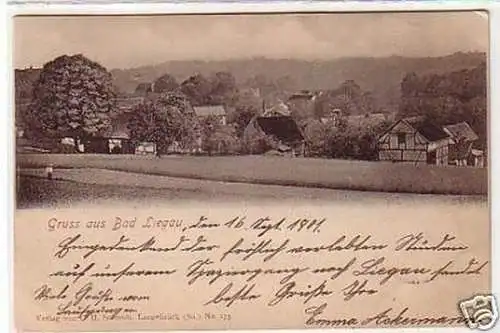 Gruss aus Bad Liegau, den 16. Sept. 1901.
Eingedenkend der fröhlich verlebten Stunden
auf unserem Spaziergang nach Liegau sendet
Viele Grüße vom
beste Grüße Ihr
Emma Ackermann
Verlag von H. Langebrück (Sa.) No. 175